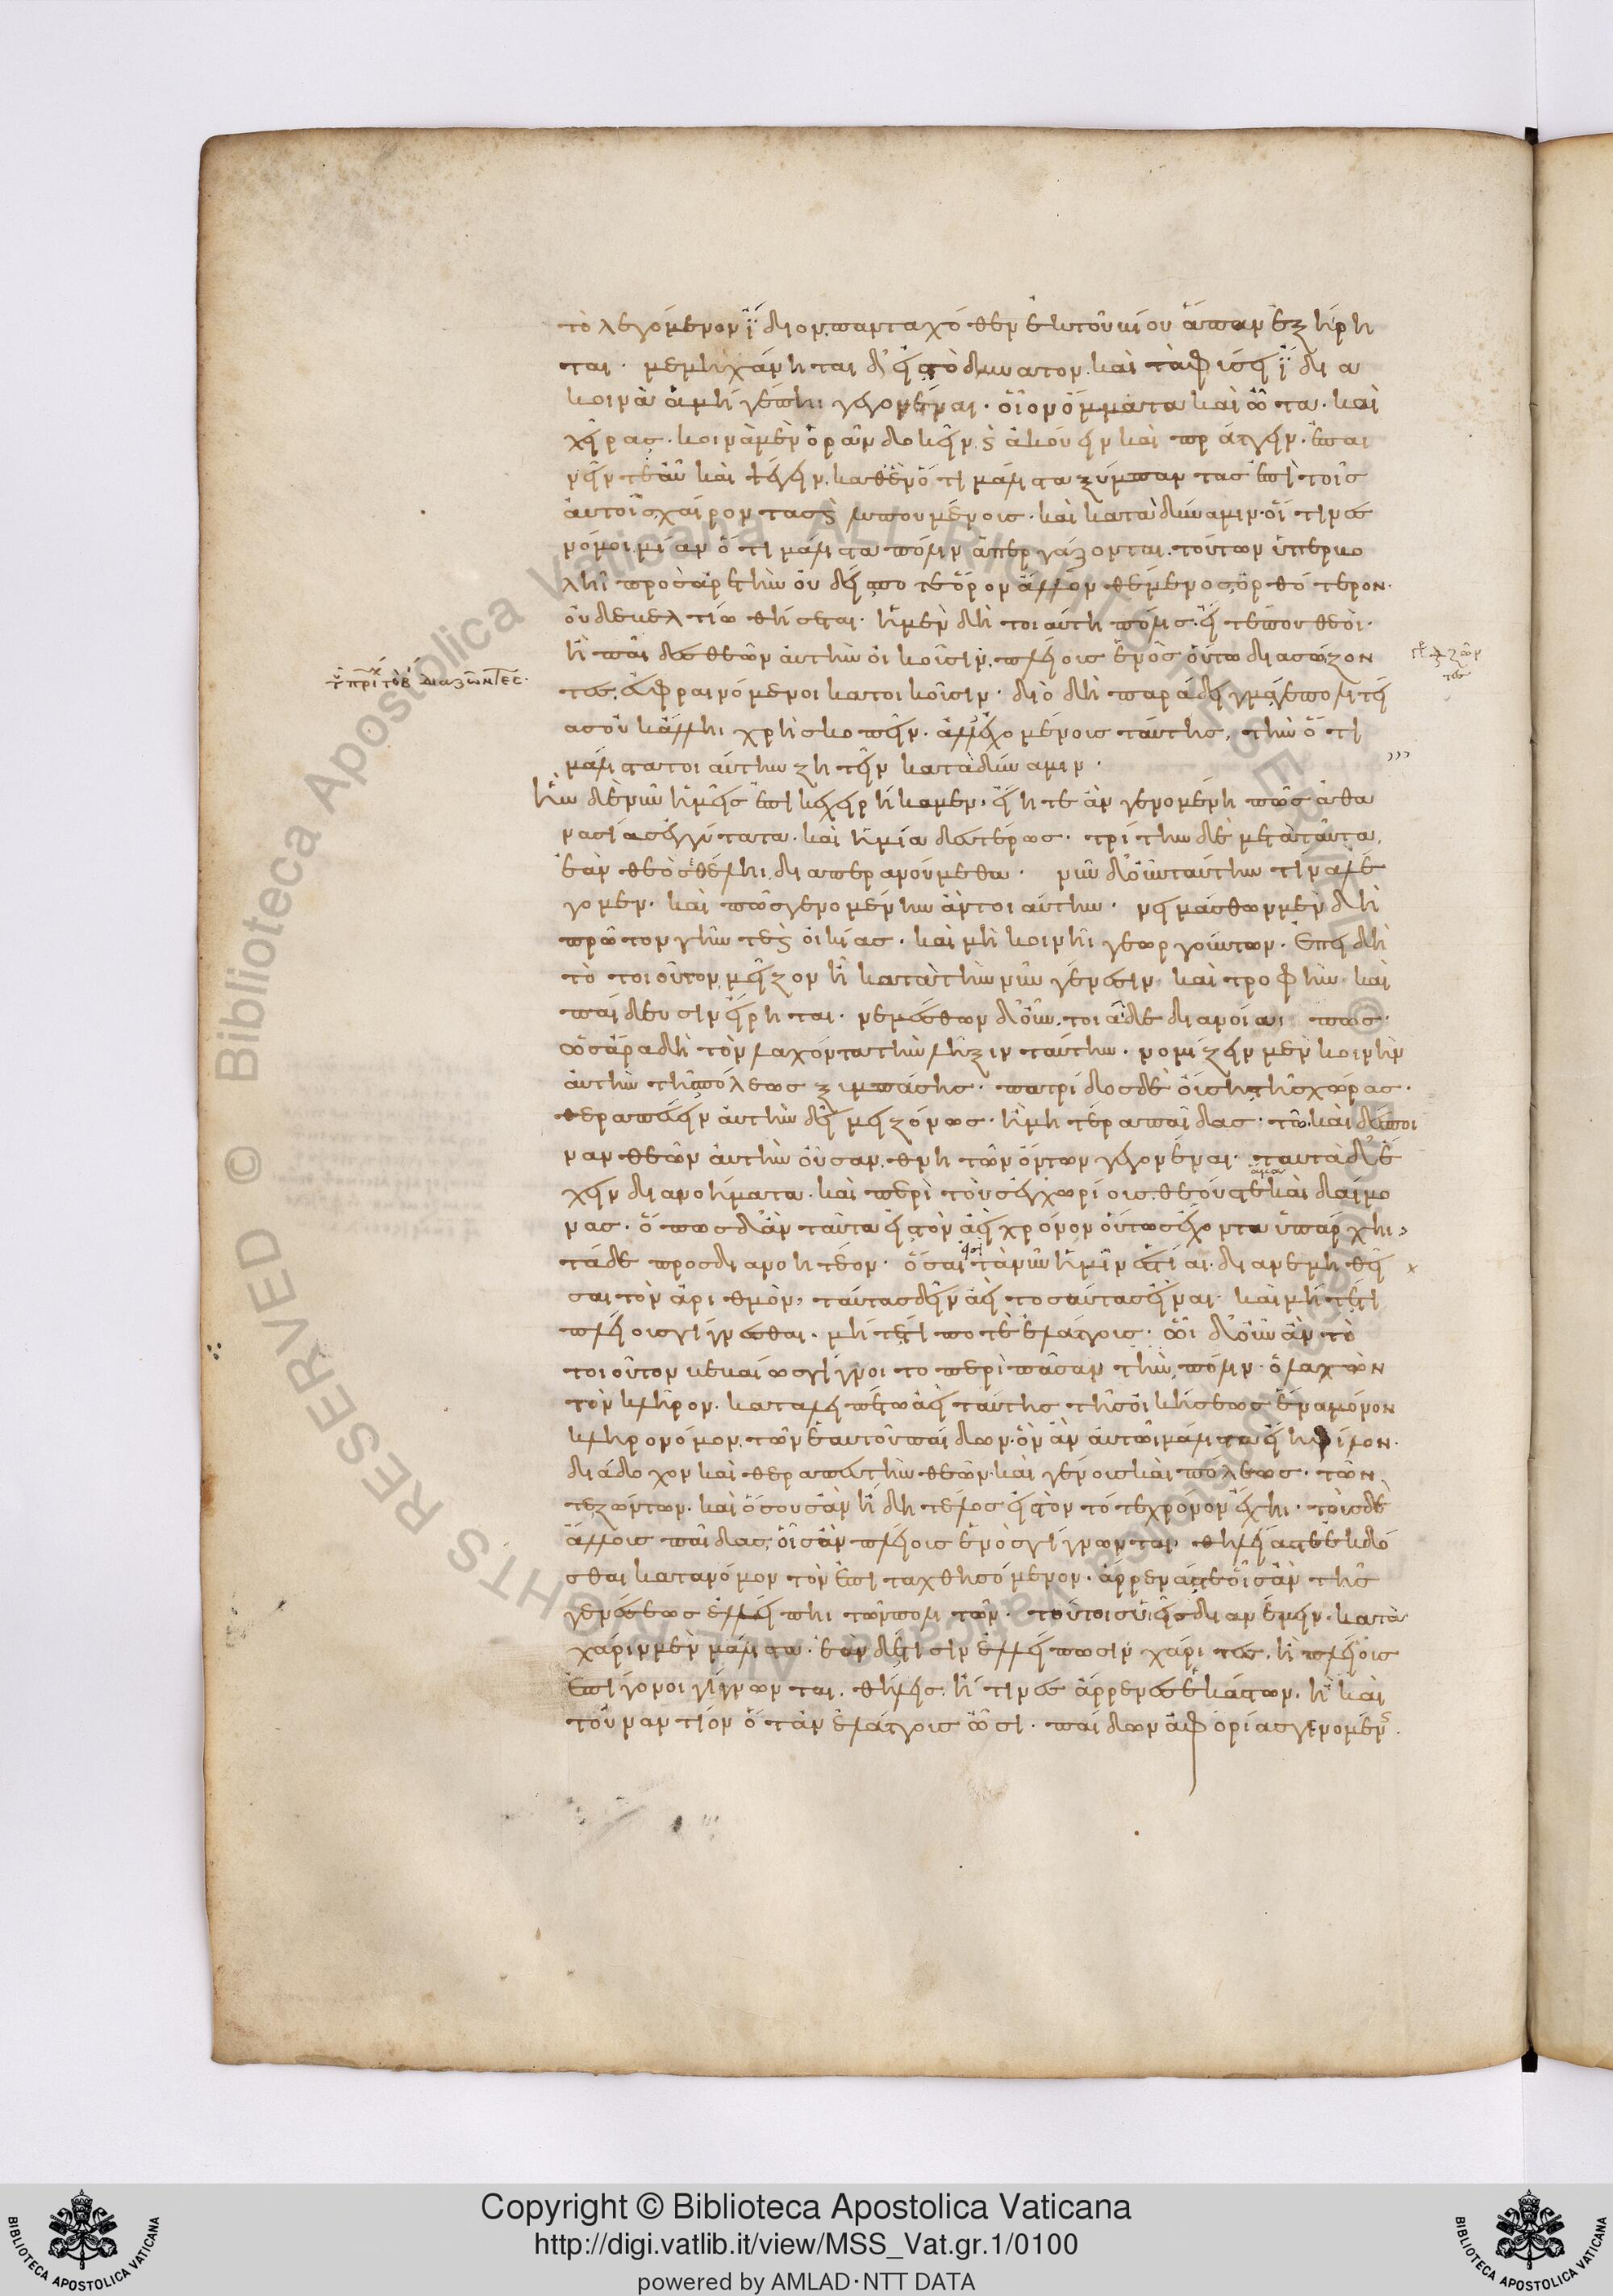 τὸ λεγόμενον ἴδιον, πανταχόθεν ἐκ τοῦ βίου ἅπαν ἐξήρη
ται· μεμηχάνηται δ' εἰς τὸ δυνατὸν καὶ τὰ φύσει ἴδια
κοινὰ ἁμῆ γέ πηι γεγονέναι· οἷον ὄμματα καὶ ὦτα· καὶ
χεῖρας· κοινὰ μὲν ὁρᾶν δοκεῖν, ϗ ἀκούειν καὶ πράττειν· ἐπαι
νεῖν τε αὖ καὶ ψέγειν, καθ' ἓν ὅ τι μάλιστα ξύμπαντας ἐπὶ τοῖς
αὐτοῖς χαίροντας ϗ λυπουμένους· καὶ κατὰ δύναμιν οἵτινες
νόμοι μίαν ὅ τι μάλιστα πόλιν ἀπεργάζονται. τούτων ὑπερβο
λῆι πρὸς ἀρετὴν οὐδείς ποτε ὅρον ἄλλον θέμενος ὀρθότερον·
οὐδὲ βελτίω θήσεται· ἡ μὲν δὴ τοιαύτη πόλις· εἴτέ που θεοὶ·
ἢ παῖδες θεῶν αὐτὴν οἰκοῦσιν, πλείους ἑνὸς οὕτω διασώζον
τες, εὐφραινόμενοι κατοικοῦσιν· διὸ δὴ παράδειγμά γε πολιτεί
ας οὐκ ἄλληι χρὴ σκοπεῖν· ἀλλ' ἐχομένους ταύτης, τὴν ὅ τι
μάλιστα τοιαύτην ζητεῖν κατὰ δύναμιν·
ἣν δὲ νῦν ἡμεῖς ἐπικεχειρήκαμεν, εἴη τε ἂν γενομένη πως ἀθα
νασίας ἐγγύτατα· καὶ ἡ μία δευτέρως· τρίτην δὲ μετὰ ταῦτα,
ἐὰν θεὸς ἐθέληι, διαπερανούμεθα· νῦν δ' οὖν ταύτην τίνα λέ
γομεν· καὶ πῶς γενομένην ἂν τοιαύτην· νειμάσθων μὲν δὴ
πρῶτον γῆν τε ϗ οἰκίας· καὶ μὴ κοινῆι γεωργούντων· ἐπειδὴ
τὸ τοιοῦτον μεῖζον ἢ κατὰ τὴν νῦν γένεσιν καὶ τροφὴν καὶ
παίδευσιν εἴρηται· νεμέσθων δ' οὖν τοιᾶιδε διανοίαι πως·
ὡς ἄρα δεῖ τὸν λαχόντα τὴν λῆξιν ταύτην· νομίζειν μὲν κοινὴν
αὐτὴν τῆς πόλεως ξυμπάσης· πατρίδος δὲ οὔσης τῆς χώρας·
θεραπεύειν αὐτὴν δεῖ μειζόνως· ἢ μητέρα παῖδας· τῶ καὶ δέσποι
ναν θεῶν αὐτὴν οὖσαν, θνητῶν ὄντων γεγονέναι· ταυτὰ δ' ἔ
χειν διανοήματα· καὶ περὶ τοὺς ἐγχωρίους θεούς τε ἅμα καὶ δαίμο
νας· ὅπως δ' ἂν ταῦτα εἰς τὸν ἀεὶ χρόνον οὕτως ἔχοντα ὑπάρχηι,
τάδε προσδιανοητέον· ὅσαι εἰσὶ τὰ νῦν ἡμῖν ἑστίαι διανεμηθεῖ
σαι τὸν ἀριθμὸν, ταύτας δεῖν ἀεὶ τοσαύτας εἶναι· καὶ μήτέ τι
πλείους γίγνεσθαι· μήτέ τί ποτε ἐλάττους· ὧδ' οὖν ἂν τὸ
τοιοῦτον βεβαίως γίγνοιτο περὶ πᾶσαν τὴν πόλιν· ὁ λαχὼν
τὸν κλῆρον· καταλειπέτω ἀεὶ ταύτης τῆς οἰκήσεως ἕνα μόνον
κληρονόμον, τῶν ἑαυτοῦ παίδων· ὃν ἂν αὐτῶι μάλιστα εἴη φίλον·
διάδοχον καὶ θεραπευτὴν θεῶν· καὶ γένους καὶ πόλεως· τῶν
τε ζώντων· καὶ ὅσους ἂν ἤδη τέλος εἰς τὸν τότε χρόνον ἔχηι· τοὺς δὲ
ἄλλους παῖδας, οἷς ἂν πλείους ἑνὸς γίγνωνται, θηλείας τε ἐκδό
σθαι κατὰ νόμον τὸν ἐπιταχθησόμενον· ἄρρενας τε οἷς ἂν τῆς
γενέσεως ἐλλείπηι τῶν πολιτῶν· τούτοις υἱεῖς διανέμειν· κατὰ
χάριν μὲν μάλιστα· ἐὰν δέ τισιν ἐλλείπωσιν χάριτες, ἢ πλείους
ἐπίγονοι γίγνωνται· θήλεις, ἤ τινες ἄρρενες ἑκάστων, ἢ καὶ
τοὐναντίον ὅταν ἐλάττους ὦσι· παίδων ἀφορίας γενομένης
διαζῶντες·